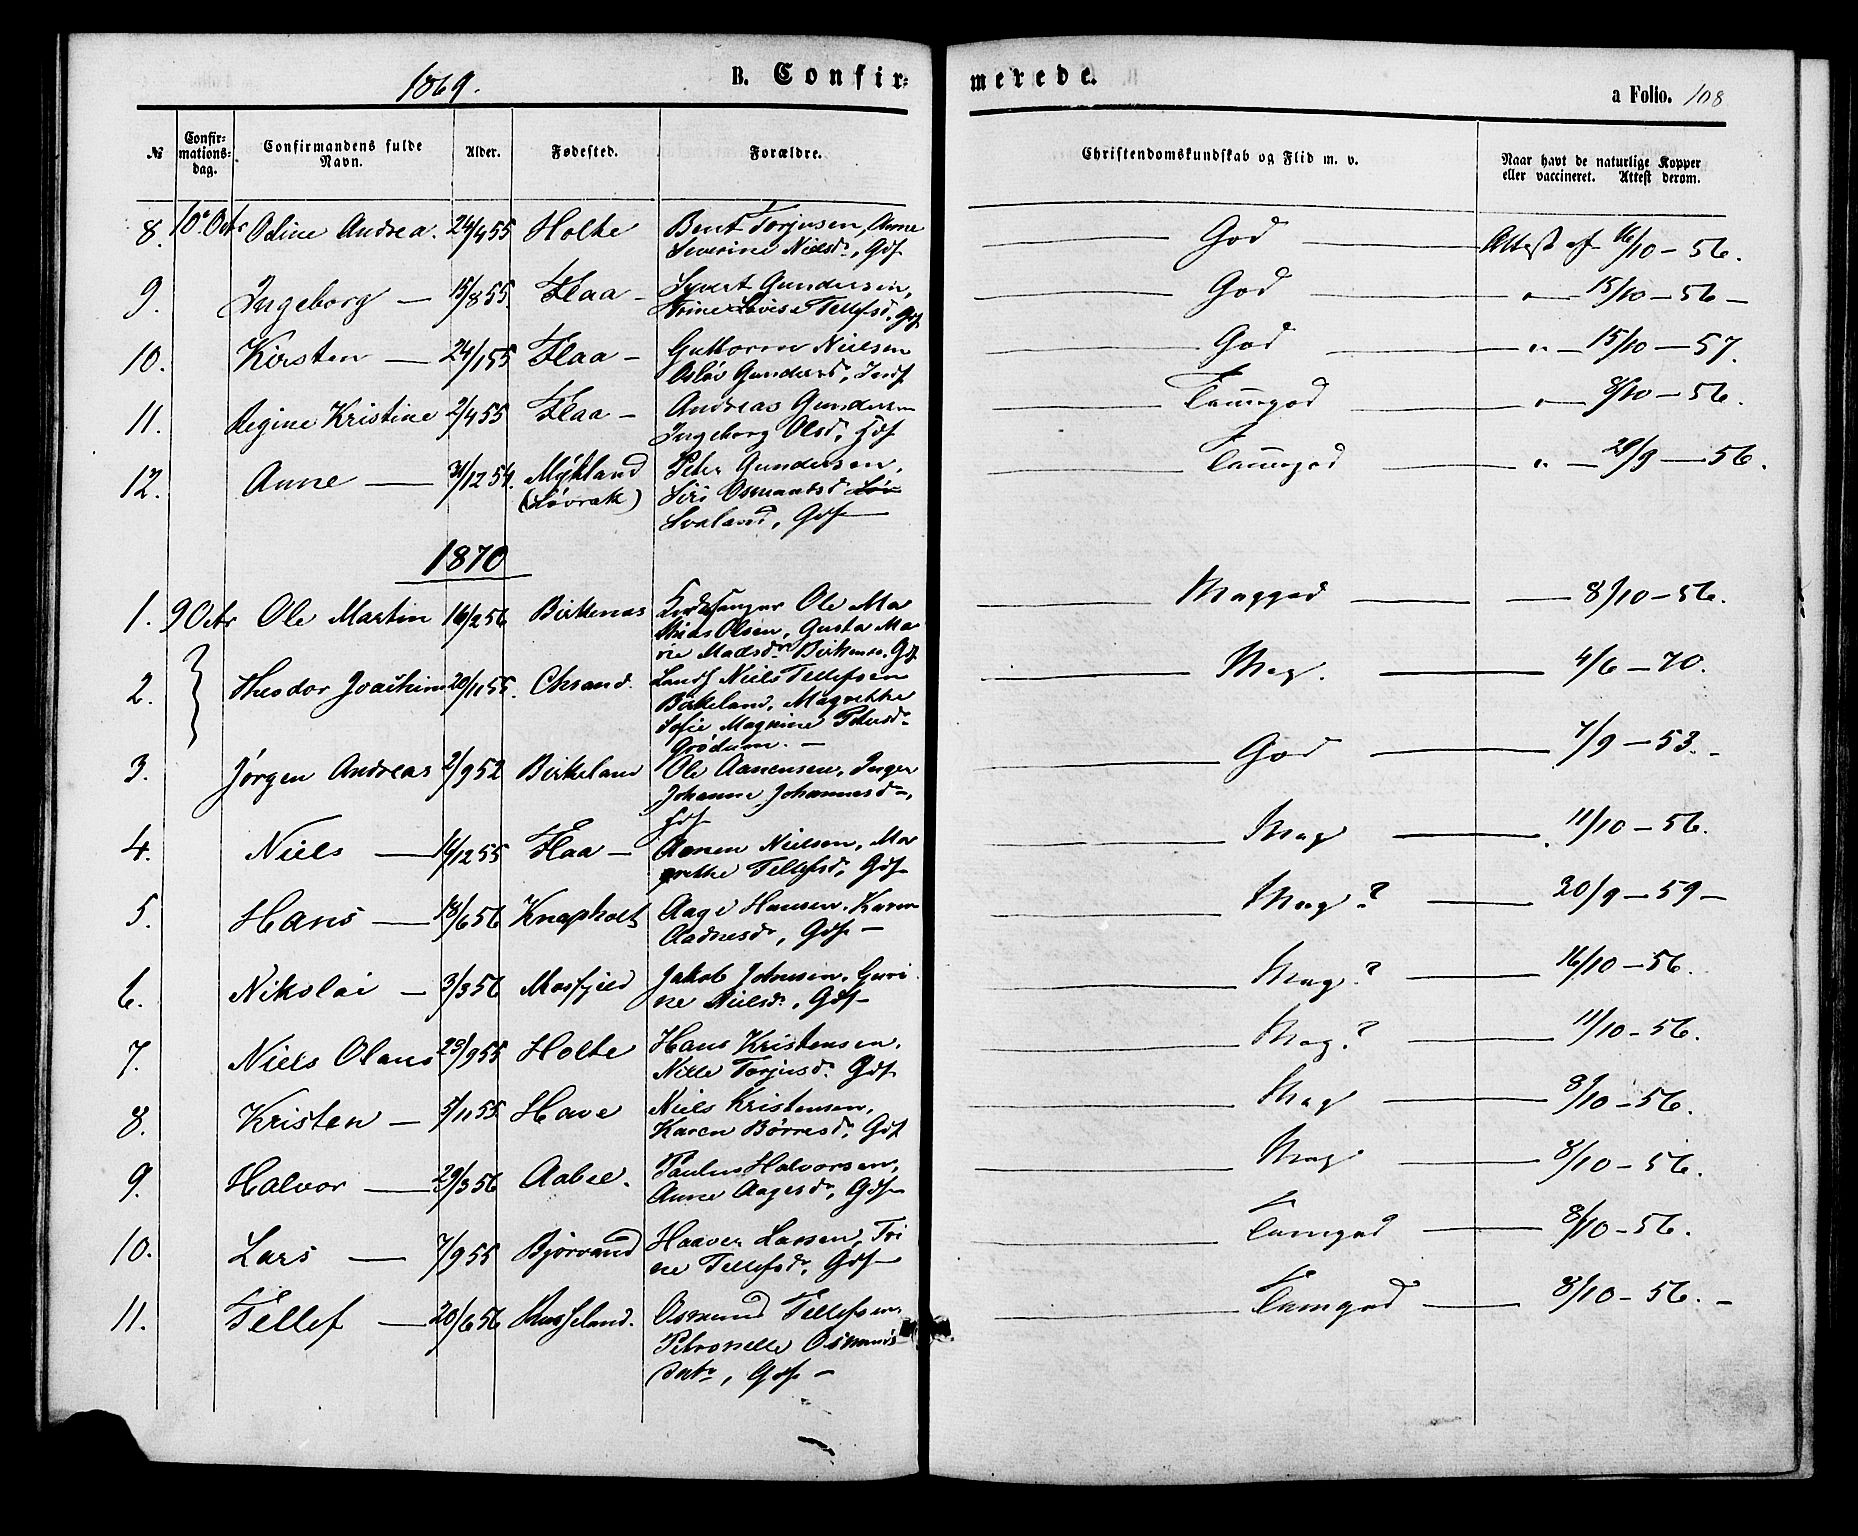 1869.
B. Confir-
merede.
a Folio. 108
№
Confir-
mations-
dag.
Confirmandens fulde
Navn.
Alder.
Fødested.
Forældre.
Christendomskundskab og Flid m. v.
Naar havt de naturlige Kopper
eller vaccineret. Attest derom.
8. 10. Octr Odine Andrea. 24/4 55 Holte Bent Torjusen, Anne
Severine Nielsd., Gdf God Attest af 16/10 - 56.
9. Ingeborg — 15/8 55. Flaa — Syvert Gundersen,
Trine Lovise Tellefsd. Gdf God " 15/10 - 56 -
10. Kirsten — 24/1 55 Flaa — Guttorm Nielsen
Asløv Gundersd., Indf God " 15/10 - 57.
11. Regine Kristine 2/4 55 Flaa — Andreas Gundersen
Ingeborg Olsd., Gdf Tammgod " 8/10 - 56.
12. Anne — 31/12 54. Mykland Peter Gundersen,
(Løvrak) Siri Osmundsd.
Svaland, Gdf Tammgod " 29/9 - 56.
1870
1. 9 Octr Ole Martin 16/2 56 Birkenæs Kirkesanger Ole Ma
thias Olsen, Gusta Ma-
rie Madsd. Birkenæs. Gdf Meggod 8/10 - 56.
2. Theodor Joachim 20/11 55. Chrsand. Landh. Niels Tellefsen
Birkeland, Magrethe
Sofie Magnine Petersd.
Grødum. — Meg. 4/6 - 70.
3. Jørgen Andreas 2/9 52 Birkeland Ole Aanensen, Inger
Johanne Johannesd.,
Gdf God 7/9 - 53. -
4. Niels — 14/12 55 Flaa — Aanen Nielsen, Ma
grethe Tellefsd., Gdf Meg 11/10 - 56.
5. Hans — 18/6 56 Knapholt Aage Hansen, Karen
Aadnesd., Gdf — Meg? 20/9 - 59 -
6. Nikolai — 3/3 56 Mosfjeld Jakob Johnsen, Guri
ne Nielsd., Gdf — Meg? 16/10 - 56.
7. Niels Olaus 29/9 55 Holte Hans Kristensen,
Nille Torjusd. Gdf Meg? 11/10 - 56.
8. Kristen — 5/11 55 Have Niels Kristensen,
Karen Børresd., Gdf Meg 8/10 - 56.
9. Halvor — 29/3 56 Aabel. Paulus Halvorsen,
Anne Aagesd., Gdf — Meg 8/10 - 56.
10. Lars — 7/9 55 Bjørvand Haaver Larsen, Tri
ne Tellefsd., Gdf — Tamgod 8/10 - 56.
11. Tellef — 20/6 56 Rugsland. Osmund Tellefsen,
Petronelle Osmunds
datr, Gdf — Tamgod 8/10 - 56. -